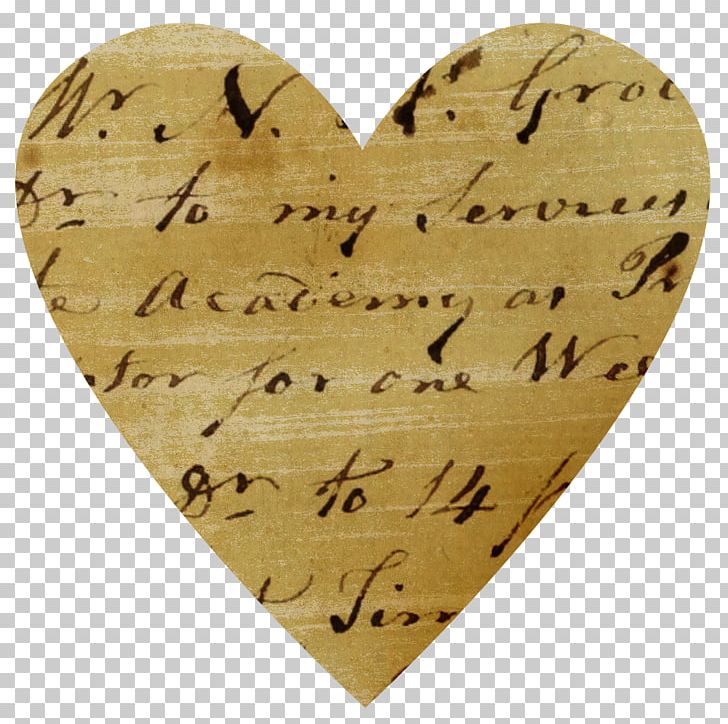 Mr. N. A. Groc
Dr to my Services
te Academy as Pr
ptor for one Wee
Dr to 14
Tim